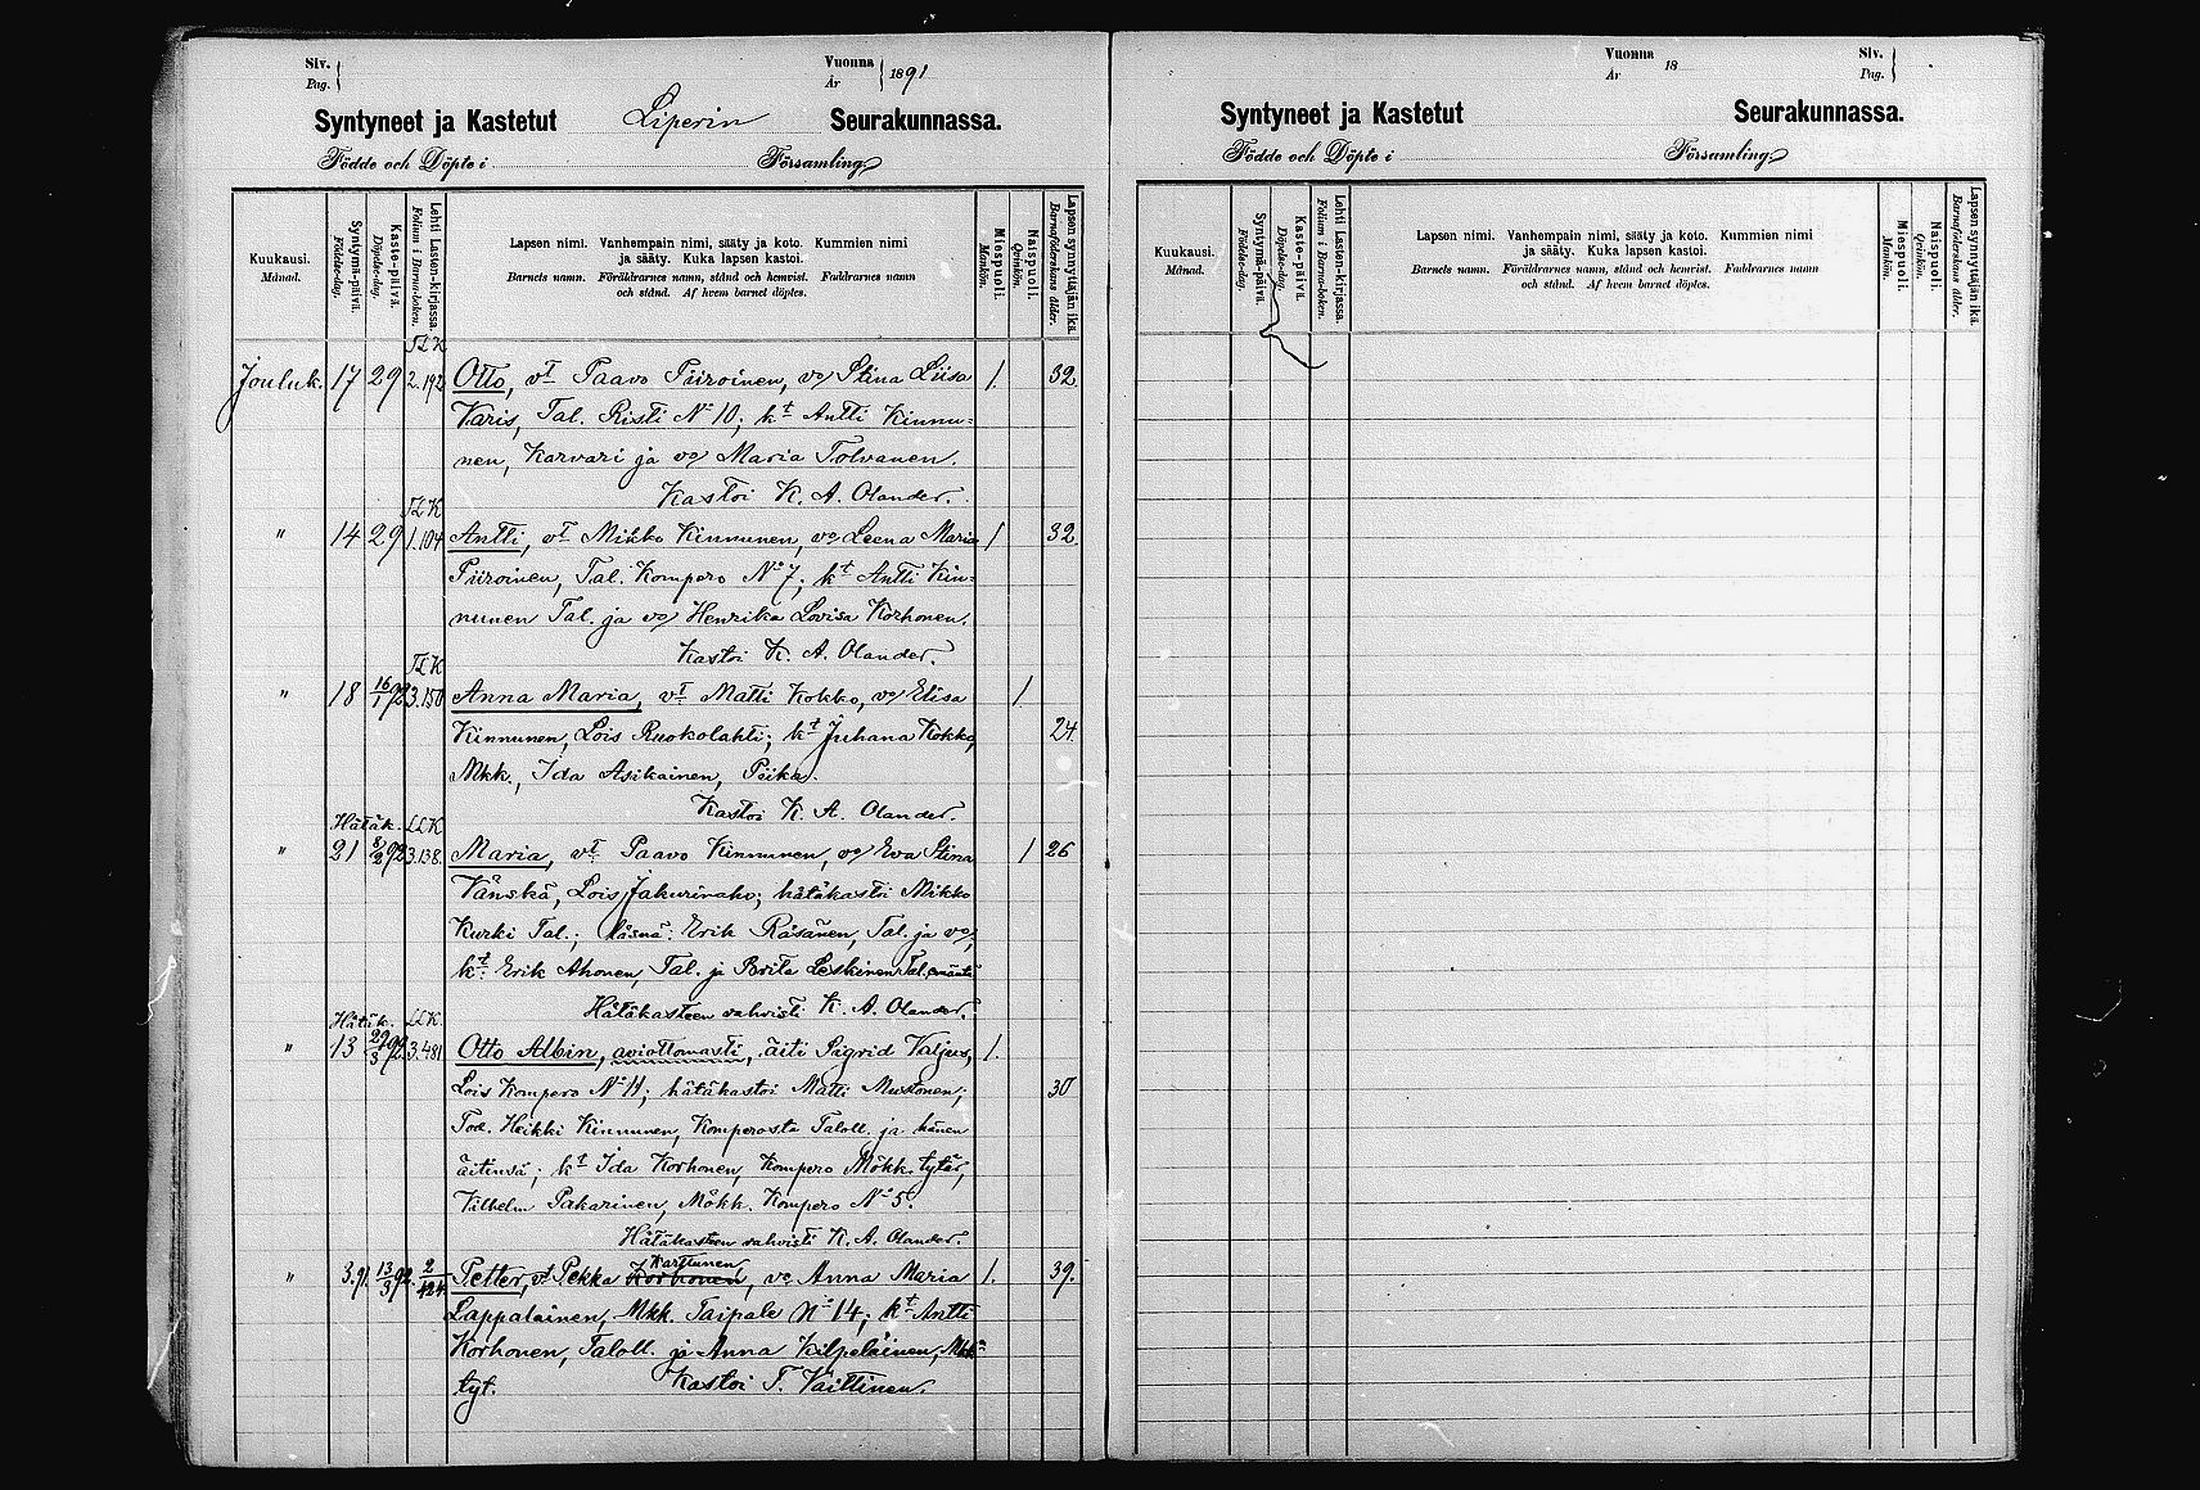 Siv.
Pag.
Vuonna
År
1891
Syntyneet ja Kastetut Liperin Seurakunnassa.
Födde och Döpte i Församling.
Kuukausi.
Månad.
Syntymä-päivä.
Födelse-dag.
Kaste-päivä.
Döpelse-dag.
Lehti Lasten-kirjassa.
Folium i Barna-boken.
Lapsen nimi. Vanhempain nimi, sääty ja koto. Kummien nimi
ja sääty. Kuka lapsen kastoi.
Barnets namn. Föräldrarnes namn, stånd och hemvist. Faddrarnes namn
och stånd. Af hvem barnet döptes.
Miespuoli.
Mankön.
Naispuoli.
Qvinkön.
Lapsen synnyttäjän ikä.
Barnaföderskans ålder.
TLK
Jouluk. 17 29 2.192 Otto, vt Paavo Piiroinen, vo Stina Liisa 1. 32
Karis, Tal. Risti No 10; kt Antti Kinnu=
nen, Karvari ja vo Maria Tolvanen.
Kastoi K. A. Olander.
TLK
" 14 29 1.104 Antti, vt Mikko Kinnunen, vo Leena Maria 1 32.
Piiroinen, Tal. Kompero No 7; kt Antti Kin=
nunen Tal. ja vo Henrika Lovisa Korhonen.
Kastoi K. A. Olander.
TLK
" 18 16/1 92 3.150 Anna Maria, vt Matti Kokko, vo Elisa 1
Kinnunen, Lois Ruokolahti; kt Juhana Kokko, 24.
Mkk., Ida Asikainen, Piika.
Kastoi K. A. Olander.
Hätäk. LLK
" 21 8/2 92 3.138. Maria, vt Paavo Kinnunen, vo Eva Stina 1 26
Vänskä, Lois Jakurinaho; hätäkastoi Mikko
Kurki Tal.; läsnä: Erik Räsänen, Tal. ja vo,
kt: Erik Ahonen, Tal. ja Brita Leskinen Tal. emäntä
Hätäkasteen vahvisti K. A. Olander.
Hätäk. LLK.
" 13 29/3 92. 3.481 Otto Albin, aviottomasti, äiti Sigrid Valjus, 1.
Lois Kompero No 11; hätäkastoi Matti Mustonen; 30
Tod. Heikki Kinnunen, Komperosta Taloll. ja hänen
äitinsä; kt Ida Korhonen, Kompero Mökk. tytär,
Vilhelm Pakarinen, Mökk. Kompero No 5.
Hätäkasteen vahvisti K. A. Olander.
Karttunen
" 3.91. 13/3 92. 2/424. Petter, vt Pekka Korhonen, vo Anna Maria 1. 39.
Lappalainen, Mkk. Taipale No 14; kt Antti
Korhonen, Taloll. ja Anna Kilpeläinen, Mkk=
tyt. Kastoi T. Vaittinen.
Vuonna
År
18
Siv.
Pag.
Syntyneet ja Kastetut Seurakunnassa.
Födde och Döpte i Församling.
Kuukausi.
Månad.
Syntymä-päivä.
Födelse-dag.
Kaste-päivä.
Döpelse-dag.
Lehti Lasten-kirjassa.
Folium i Barna-boken.
Lapsen nimi. Vanhempain nimi, sääty ja koto. Kummien nimi
ja sääty. Kuka lapsen kastoi.
Barnets namn. Föräldrarnes namn, stånd och hemvist. Faddrarnes namn
och stånd. Af hvem barnet döptes.
Miespuoli.
Mankön.
Naispuoli.
Qvinkön.
Lapsen synnyttäjän ikä.
Barnaföderskans ålder.